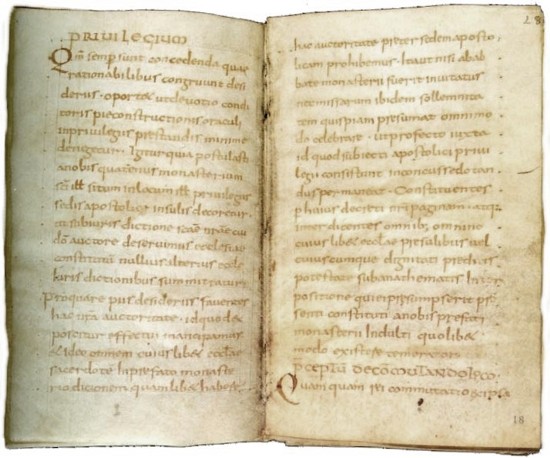 PRIVILEGIUM
Qm semp sunt concedenda quae
rationabilibus congruunt desi
deriis · oport& ut devotio condi
toris pie constructionis oraculi
in privilegiis prestandis minime
denegetur · Igitur quia postulasti
a nobis quatenus monasterium
scī ill situm in locum ill privilegiis
sedis apostolice insulis decoretur
ut sub iuris dictione scae nrae cui
dō auctore deservimus ecclesiae
constitutū nullius alterius eccle
iuris dictionibus summitatur
Pro qua re piis desideriis faventes
hac nra auctoritate · id quod ex
poscitur effectui mancipamus
& ideo omnem cuius lib& ecclae
sacerdote in prefato monaste
rio dicionem quam lib& habere
28
hac auctoritate preter sedem aposto
licam prohibemus · Ita ut nisi ab ab
bate monasterii fuerit invitatus
nec missarum ibidem sollemnita
tem quispiam presumat omnimo
do celebrare · ut profecto iuxta
id quod subiecti apostolici privi
legii consistunt inconcusse dotan
dus permaneat · Constituentes
p huius decreti nri paginam · atq:
interdicentes omnib; omnino
cuius lib& ecclae presulibus vel
cuiuscumque dignitati preditis
potestate sub anathematis Inter
positione qui ei presumpserit pre
senti constituti a nobis prefati
monasterii Indulti quo lib&
modo existere temerator
pceptū de cōmutando loco
Quam quam rei commutatio
18